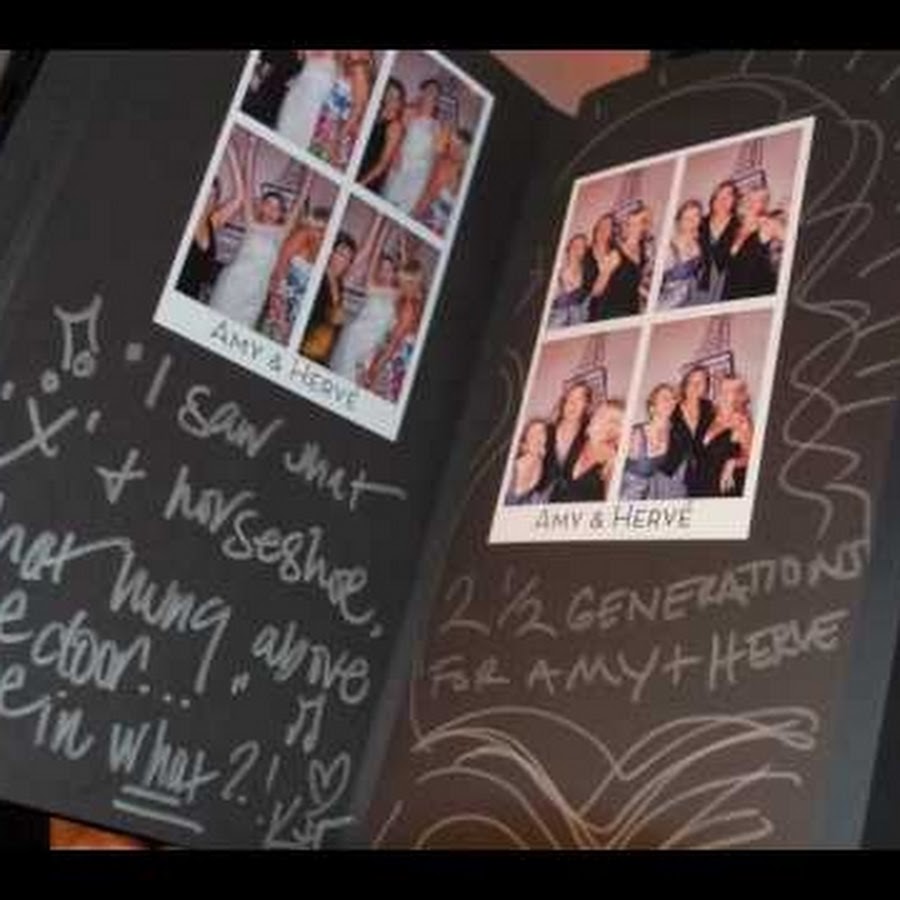 AMY & HERVÉ
"I saw that
+ horseshoe,
that hung above
door...!"
in what?!
AMY & HERVÉ
2 1/2 GENERATIONS
FOR AMY + HERVE